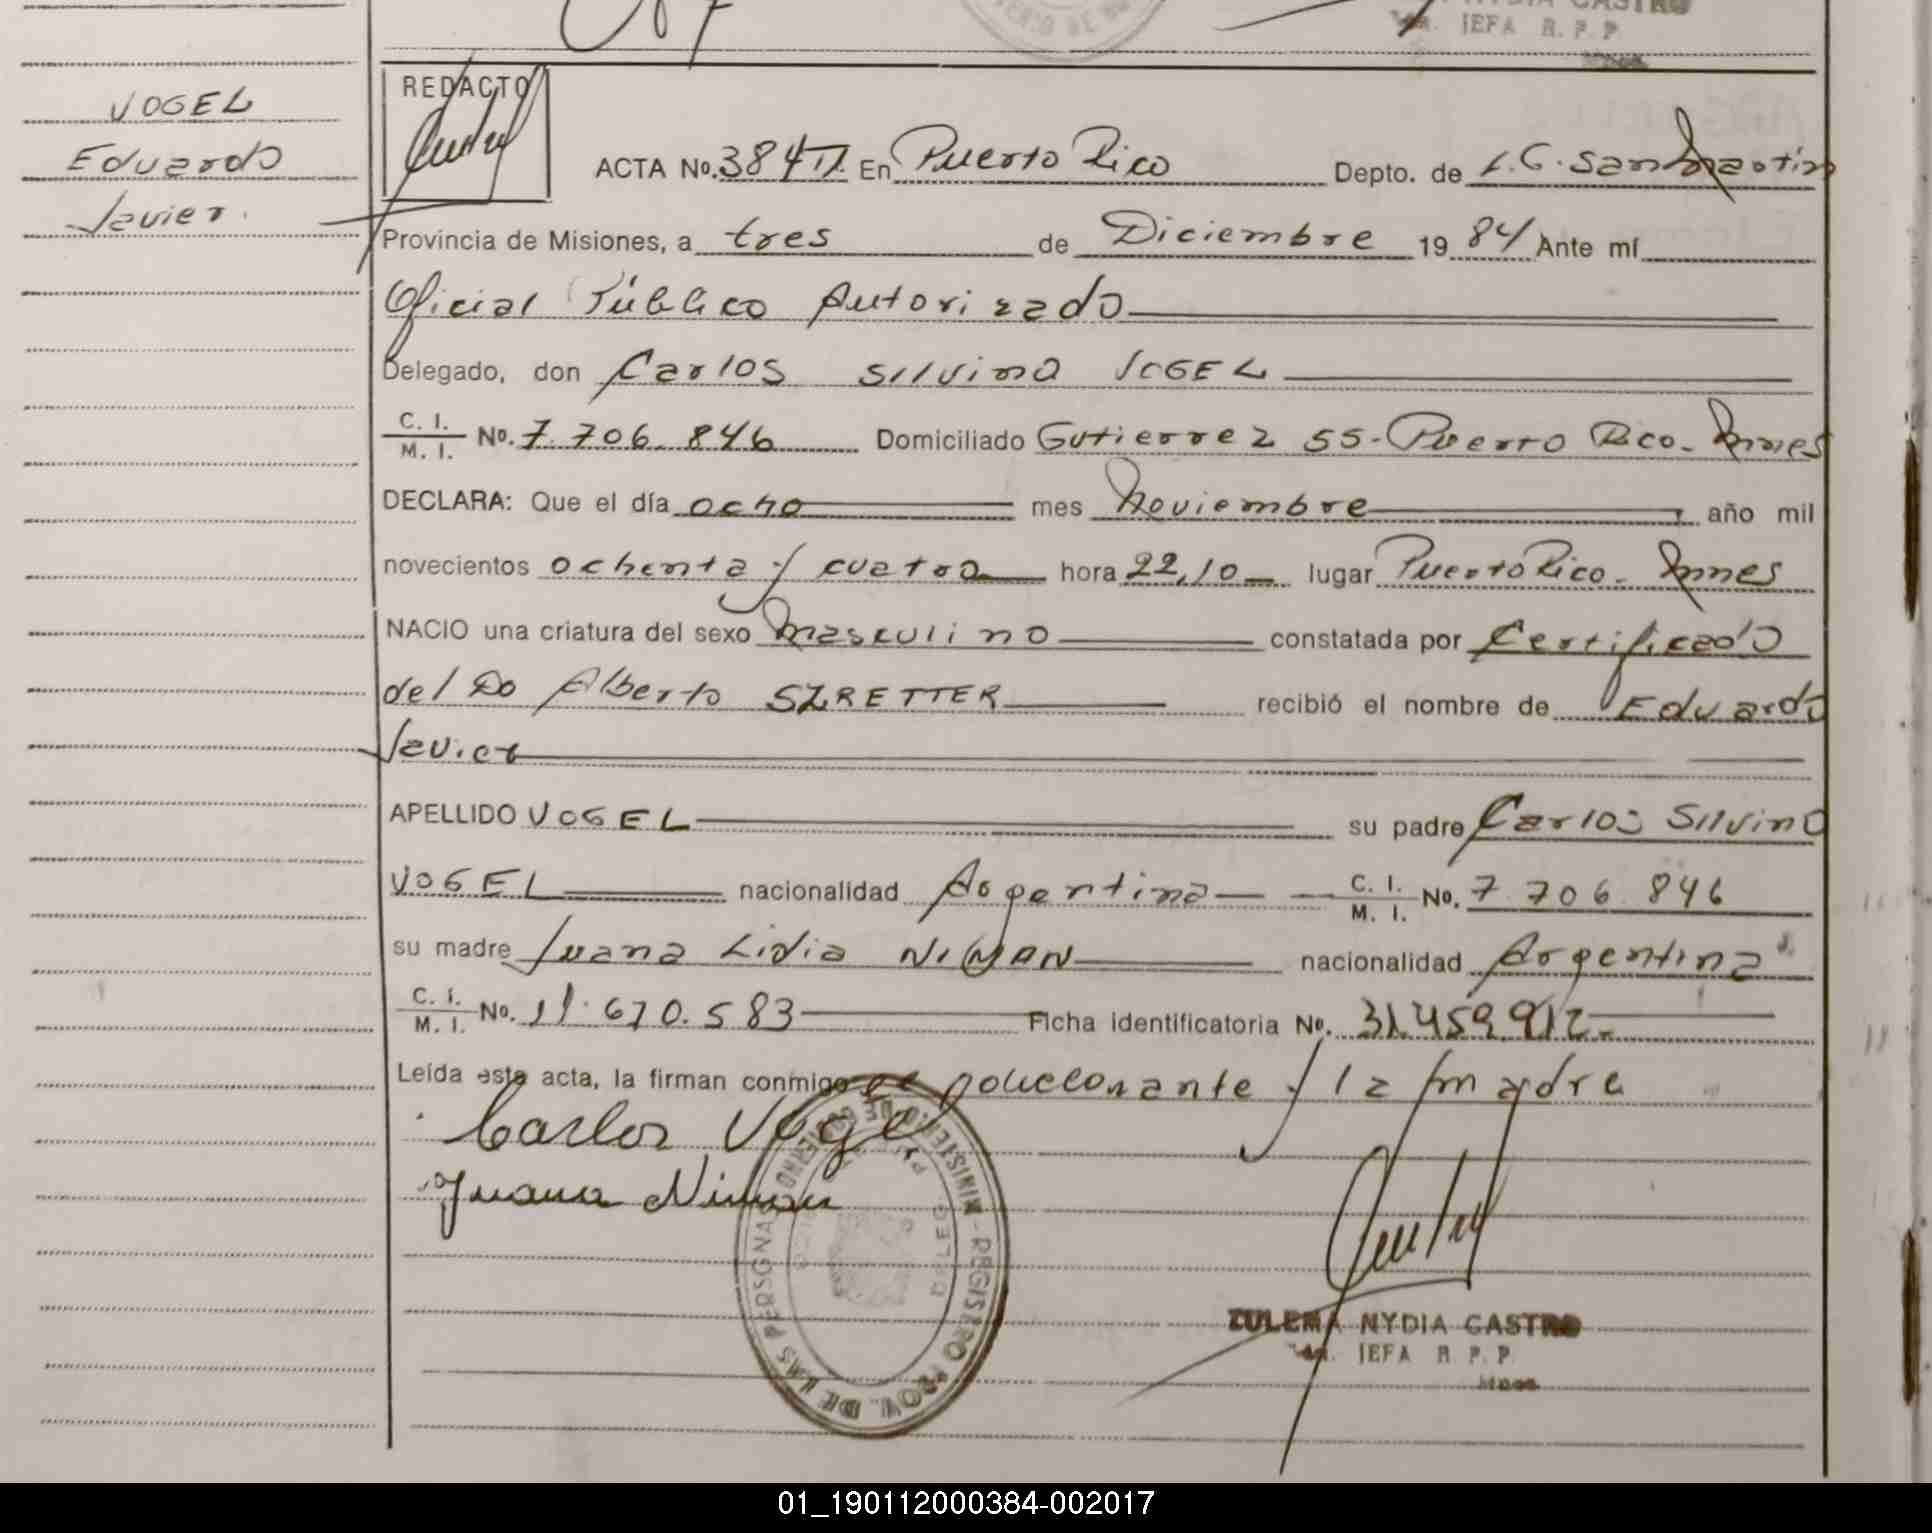 NYDIA CASTRO
JEFA R. P. P.
VOGEL
Eduardo
Javier.
REDACTO
ACTA No. 384 En Puerto Rico Depto. de L.G. San Martin
Provincia de Misiones, a tres de Diciembre 19 84 Ante mí
Oficial Público Autorizado
Delegado, don Carlos Silvino VOGEL
C. I.
M. I. No. 7.706.846 Domiciliado Gutierrez 55-Puerto Rico-Mnes
DECLARA: Que el día ocho mes Noviembre año mil
novecientos ochenta y cuatro hora 22,10 lugar Puerto Rico-Mnes
NACIO una criatura del sexo Masculino constatada por Certificado
del Dr Alberto SZRETTER recibió el nombre de Eduardo
Javier
APELLIDO VOGEL su padre Carlos Silvino
VOGEL nacionalidad Argentina C. I.
M. I. No. 7.706.846
su madre Juana Lidia NIMAN nacionalidad Argentina
C. I.
M. I. No. 11.670.583 Ficha identificatoria No. 31.459.912-
Leída esta acta, la firman conmigo el declarante y la madre
Carlos Vogel
Juana Niman
MINISTERIO DE GOBIERNO - REGISTRO PROV. DE LAS PERSONAS
ZULEMA NYDIA CASTRO
JEFA R. P. P.
01_190112000384-002017